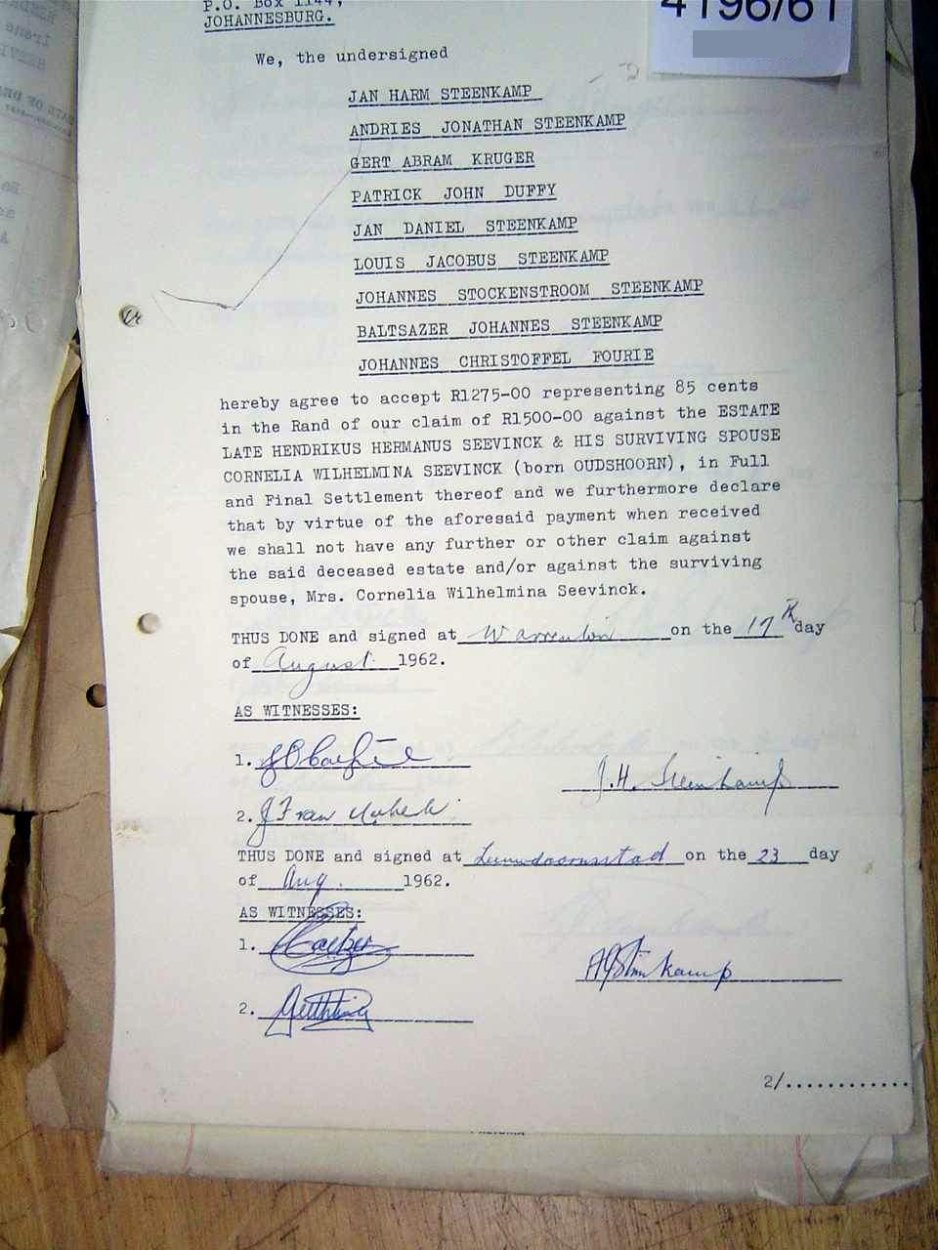 P.O. Box 1144,
JOHANNESBURG.
4196/61
We, the undersigned
JAN HARM STEENKAMP
ANDRIES JONATHAN STEENKAMP
GERT ABRAM KRUGER
PATRICK JOHN DUFFY
JAN DANIEL STEENKAMP
LOUIS JACOBUS STEENKAMP
JOHANNES STOCKENSTROOM STEENKAMP
BALTSAZER JOHANNES STEENKAMP
JOHANNES CHRISTOFFEL FOURIE
hereby agree to accept R1275-00 representing 85 cents
in the Rand of our claim of R1500-00 against the ESTATE
LATE HENDRIKUS HERMANUS SEEVINCK & HIS SURVIVING SPOUSE
CORNELIA WILHELMINA SEEVINCK (born OUDSHOORN), in Full
and Final Settlement thereof and we furthermore declare
that by virtue of the aforesaid payment when received
we shall not have any further or other claim against
the said deceased estate and/or against the surviving
spouse, Mrs. Cornelia Wilhelmina Seevinck.
THUS DONE and signed at Warrenton on the 17th day
of August 1962.
AS WITNESSES:
1.
J.H. Steenkamp
2.
THUS DONE and signed at Leeuwdoornsstad on the 23 day
of Aug. 1962.
AS WITNESSES:
1. Coetzer
AJ Steenkamp
2.
2/............